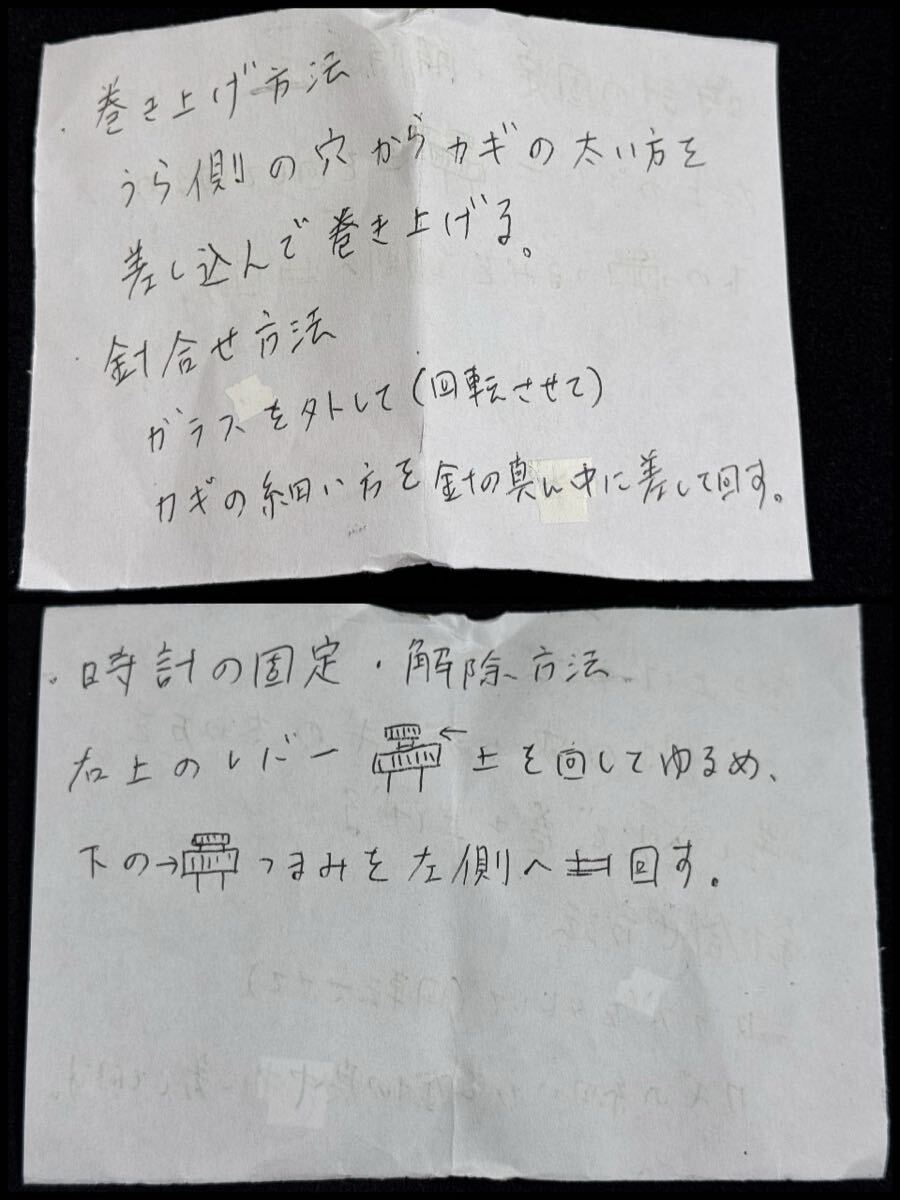 ・巻き上げ方法
うら側の穴からカギの太い方を
差し込んで巻き上げる。
・針合せ方法
ガラスを外して(回転させて)
カギの細い方を針の真ん中に差して回す。
・時計の固定・解除方法
右上のレバー ← 上を回してゆるめ、
下の→つまみを左側へ回す。